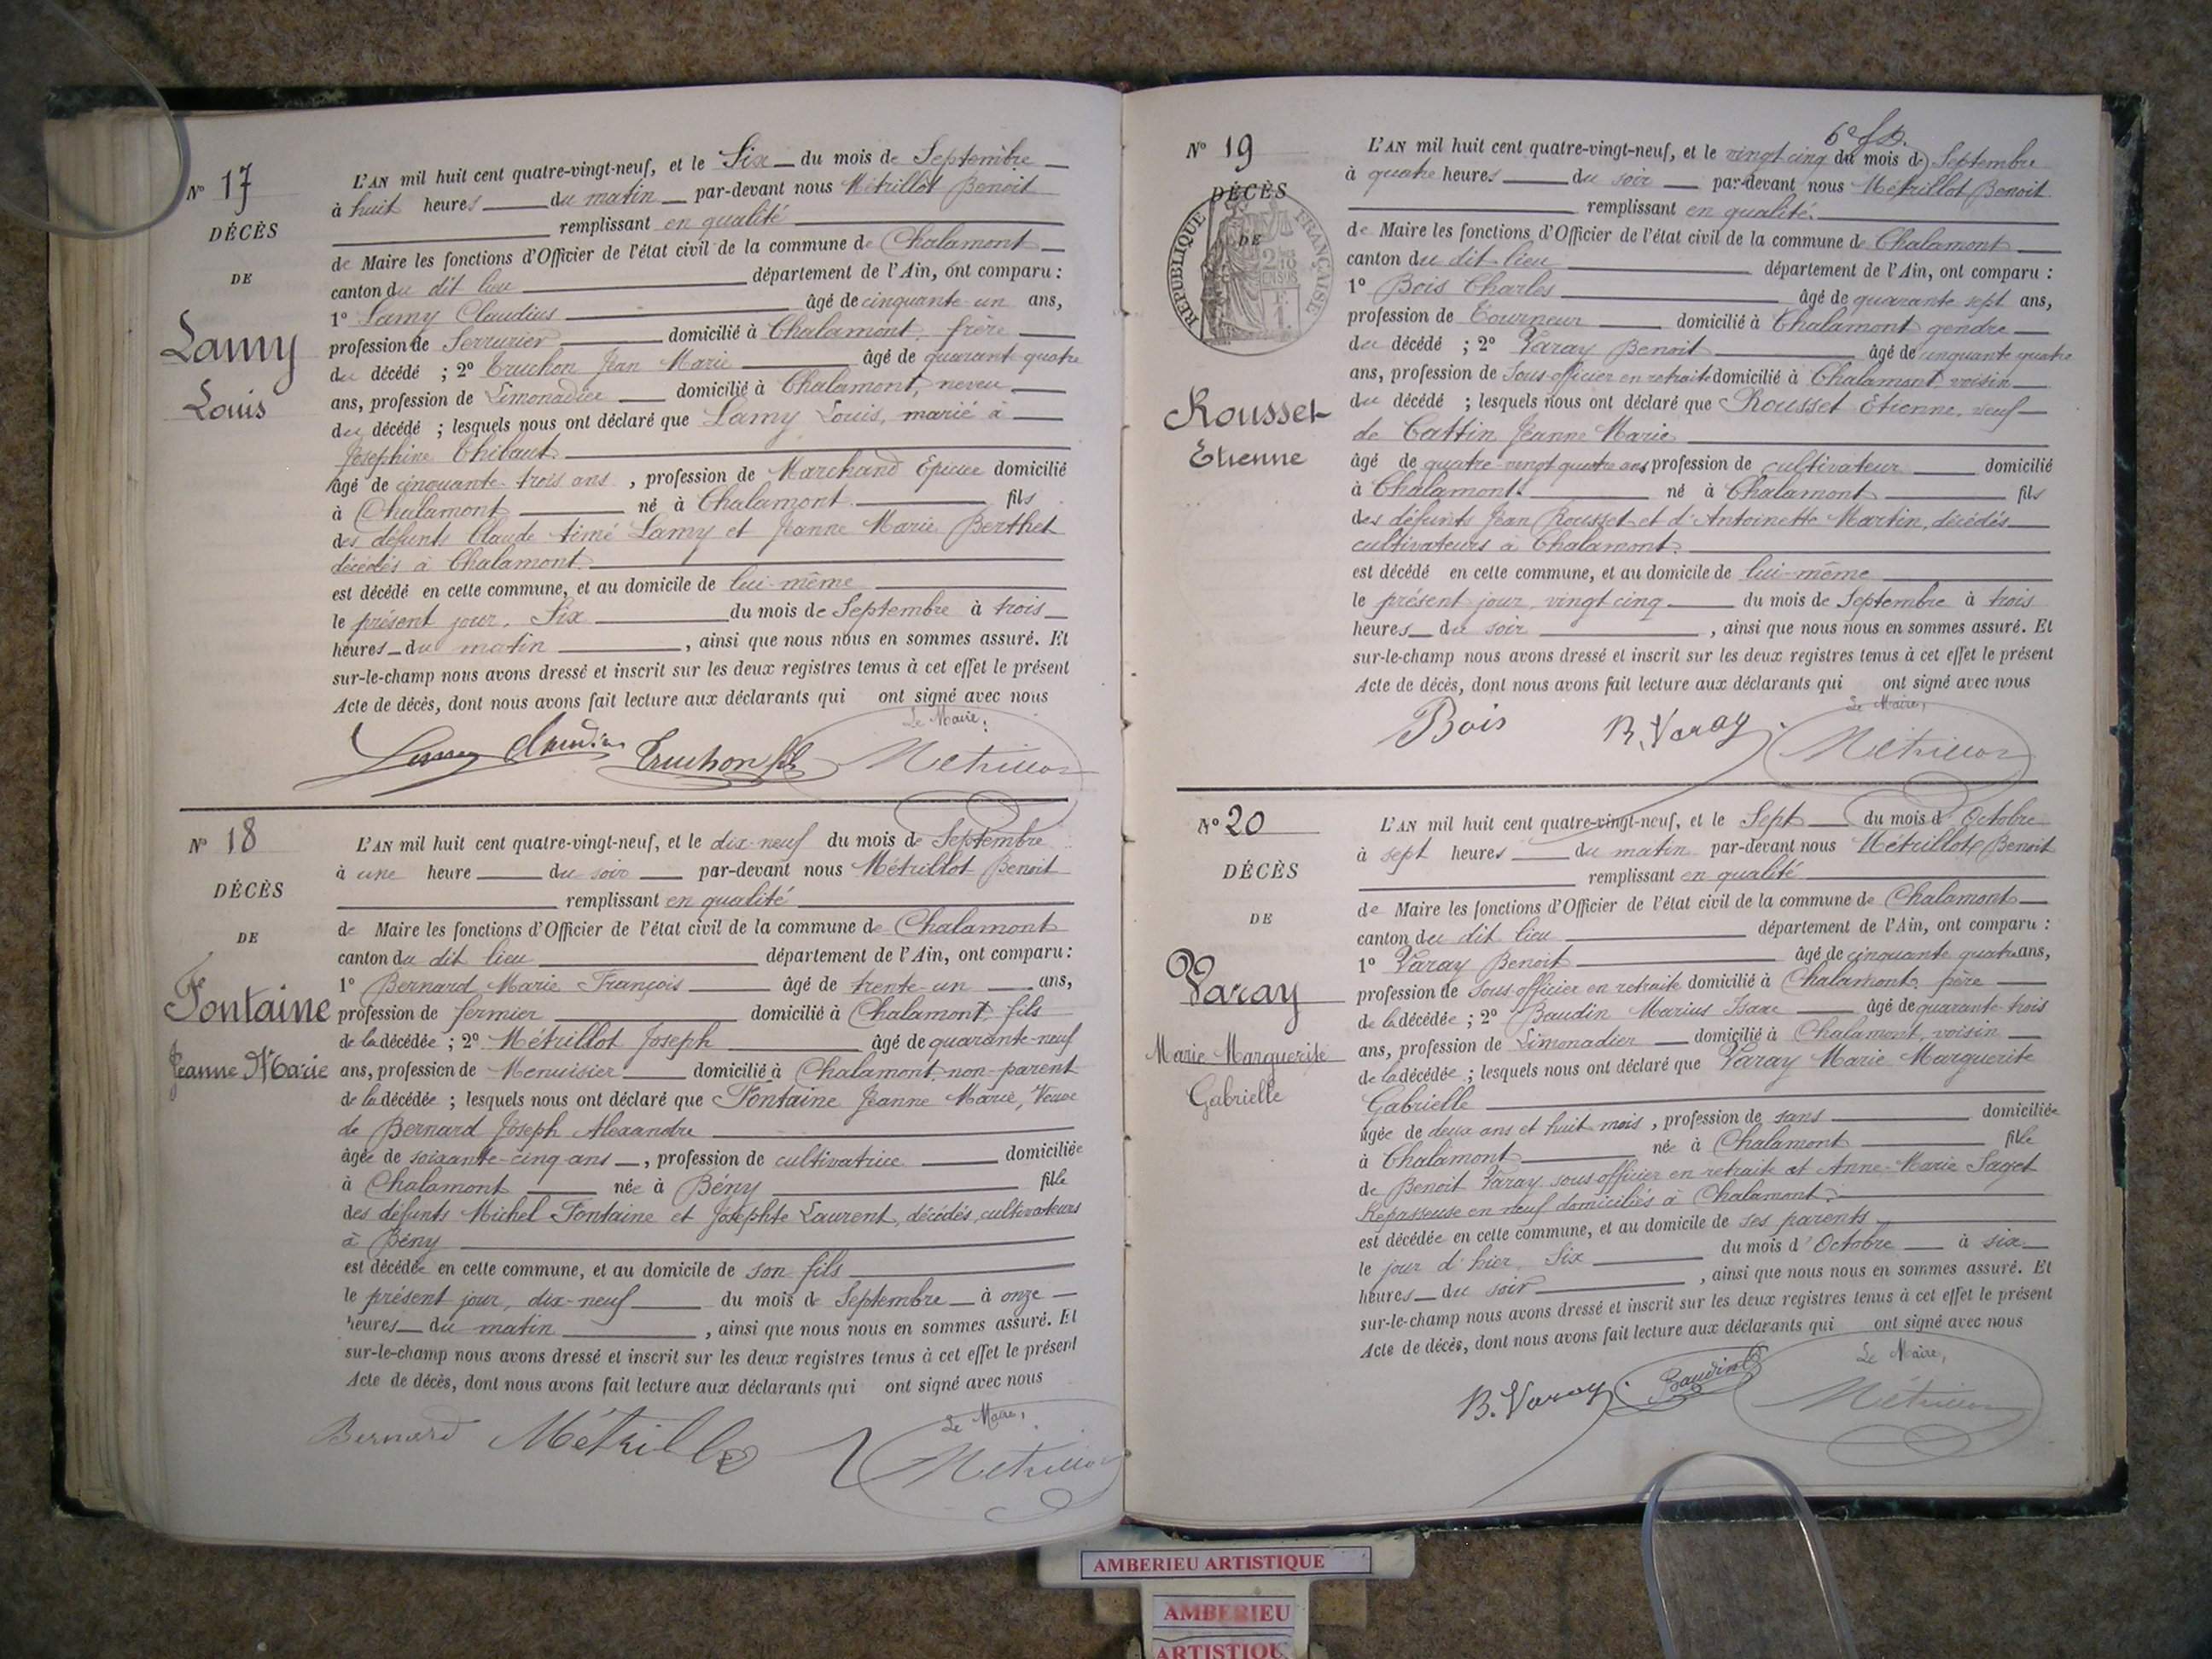 N° 17
DÉCÈS
DE
Lamy
Louis
L'AN mil huit cent quatre-vingt-neuf, et le Six du mois de Septembre
à huit heures du matin par-devant nous Métrillot Benoit
remplissant en qualité
de Maire les fonctions d'Officier de l'état civil de la commune de Chalamont
canton du dit lieu département de l'Ain, ont comparu :
1° Lamy Claudius âgé de cinquante-un ans,
profession de Serrurier domicilié à Chalamont, frère
du décédé ; 2° Truchon Jean Marie âgé de quarant quatre
ans, profession de Limonadier domicilié à Chalamont, neveu
du décédé ; lesquels nous ont déclaré que Lamy Louis, marié à
Joséphine Thibaut.
âgé de cinquante-trois ans, profession de Marchand Epicier domicilié
à Chalamont né à Chalamont fils
des défunts Claude Aimé Lamy et Jeanne Marie Berthet
décédés à Chalamont.
est décédé en cette commune, et au domicile de lui-même
le présent jour, Six du mois de Septembre à trois
heures du matin, ainsi que nous nous en sommes assuré. Et
sur-le-champ nous avons dressé et inscrit sur les deux registres tenus à cet effet le présent
Acte de décès, dont nous avons fait lecture aux déclarants qui ont signé avec nous
Le Maire,
Lamy Claudius Truchon fils Métrillot
N° 18
DÉCÈS
DE
Fontaine
Jeanne Marie
L'AN mil huit cent quatre-vingt-neuf, et le dix-neuf du mois de Septembre
à une heure du soir par-devant nous Métrillot Benoit
remplissant en qualité
de Maire les fonctions d'Officier de l'état civil de la commune de Chalamont
canton du dit lieu département de l'Ain, ont comparu :
1° Bernard Marie François âgé de trente-un ans,
profession de fermier domicilié à Chalamont, fils
de la décédée ; 2° Métrillot Joseph âgé de quarante-neuf
ans, profession de Menuisier domicilié à Chalamont, non-parent
de la décédée ; lesquels nous ont déclaré que Fontaine Jeanne Marie, Veuve
de Bernard Joseph Alexandre
âgée de soixante-cinq ans, profession de cultivatrice domiciliée
à Chalamont née à Bény fille
des défunts Michel Fontaine et Josephte Laurent, décédés, cultivateurs
à Bény
est décédée en cette commune, et au domicile de son fils
le présent jour, dix-neuf du mois de Septembre à onze
heures du matin, ainsi que nous nous en sommes assuré. Et
sur-le-champ nous avons dressé et inscrit sur les deux registres tenus à cet effet le présent
Acte de décès, dont nous avons fait lecture aux déclarants qui ont signé avec nous
Le Maire,
Bernard Métrillot Métrillot
N° 19
DÉCÈS
DE
RÉPUBLIQUE FRANÇAISE
Rousset
Etienne
L'AN mil huit cent quatre-vingt-neuf, et le vingt cinq du mois de Septembre
à quatre heures du soir par-devant nous Métrillot Benoit
remplissant en qualité.
de Maire les fonctions d'Officier de l'état civil de la commune de Chalamont
canton du dit lieu département de l'Ain, ont comparu :
1° Bois Charles âgé de quarante sept ans,
profession de Tourneur domicilié à Chalamont gendre
du décédé ; 2° Varay Benoit âgé de cinquante quatre
ans, profession de Sous-officier en retraite domicilié à Chalamont voisin
du décédé ; lesquels nous ont déclaré que Rousset Etienne, veuf
de Cattin Jeanne Marie
âgé de quatre-vingt quatre ans profession de cultivateur domicilié
à Chalamont. né à Chalamont fils
des défunts Jean Rousset et d'Antoinette Martin, décédés
cultivateurs à Chalamont.
est décédé en cette commune, et au domicile de lui-même
le présent jour, vingt cinq du mois de Septembre à trois
heures du soir, ainsi que nous nous en sommes assuré. Et
sur-le-champ nous avons dressé et inscrit sur les deux registres tenus à cet effet le présent
Acte de décès, dont nous avons fait lecture aux déclarants qui ont signé avec nous
Le Maire,
Bois B. Varay Métrillot
N° 20
DÉCÈS
DE
Varay
Marie Marguerite
Gabrielle
L'AN mil huit cent quatre-vingt-neuf, et le Sept du mois d'Octobre
à sept heures du matin par-devant nous Métrillot Benoit
remplissant en qualité
de Maire les fonctions d'Officier de l'état civil de la commune de Chalamont
canton du dit lieu département de l'Ain, ont comparu :
1° Varay Benoit âgé de cinquante quatre ans,
profession de Sous-officier en retraite domicilié à Chalamont, père
de la décédée ; 2° Baudin Marius Isaac âgé de quarante trois
ans, profession de Limonadier domicilié à Chalamont, voisin
de la décédée ; lesquels nous ont déclaré que Varay Marie Marguerite
Gabrielle
âgée de deux ans et huit mois, profession de sans domiciliée
à Chalamont née à Chalamont fille
de Benoit Varay sous officier en retraite et Anne-Marie Saget
Repasseuse en neuf domiciliés à Chalamont.
est décédée en cette commune, et au domicile de ses parents
le jour d'hier, Six du mois d'Octobre à six
heures du soir, ainsi que nous nous en sommes assuré. Et
sur-le-champ nous avons dressé et inscrit sur les deux registres tenus à cet effet le présent
Acte de décès, dont nous avons fait lecture aux déclarants qui ont signé avec nous
Le Maire,
B. Varay Baudin Métrillot
AMBERIEU ARTISTIQUE
AMBERIEU
ARTISTIQU